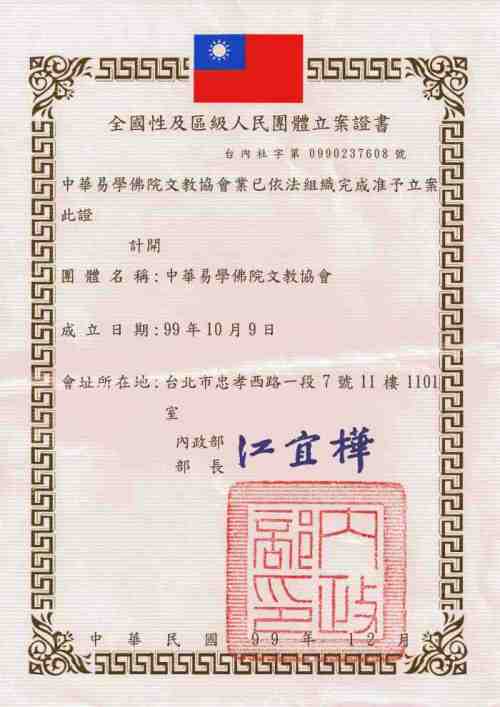 全國性及區級人民團體立案證書
台內社字第 0990237608 號
中華易學佛院文教協會業已依法組織完成准予立案
此證
計開
團體名稱：中華易學佛院文教協會
成立日期：99年10月9日
會址所在地：台北市忠孝西路一段7號11樓1101
室
內政部
部長
江宜樺
內政部印
中華民國 99 年 12 月